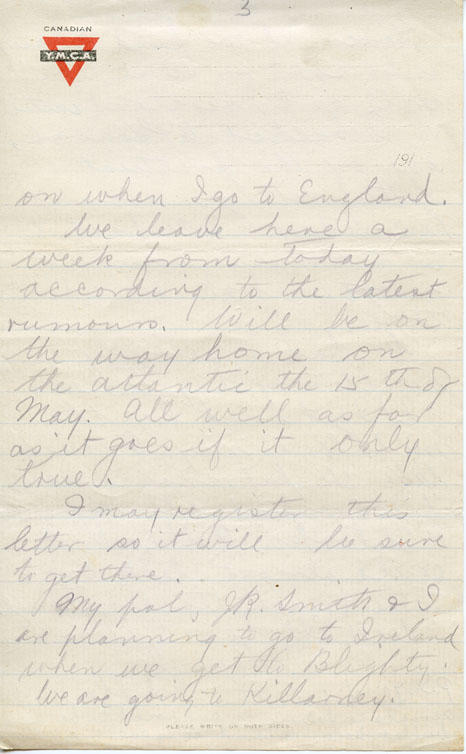 3
CANADIAN
Y.M.C.A.
191
on when I go to England.
We leave here a
week from today
according to the latest
rumours. Will be on
the way home on
the atlantic the 15 th of
May. All well as far
as it goes if it only
true.
I may register this
letter so it will be sure
to get there.
My pal, J.R. Smith & I
are planning to go to Ireland
when we get to Blighty.
We are going to Killarney.
PLEASE WRITE ON BOTH SIDES